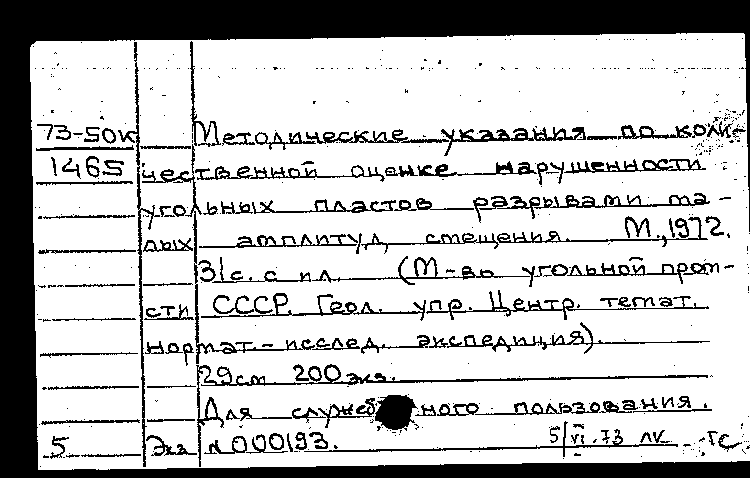 73-50к Методические указания по коли-
1465 чественной оценке нарушенности
угольных пластов разрывами ма-
лых амплитуд смещения. М., 1972.
31с. с ил. (М-во угольной пром-
сти СССР. Геол. упр. Центр. темат.
нормат.-исслед. экспедиция).
29см 200 экз.
Для служебного пользования.
5 Экз №000193. 5/VI.73 ЛК ТС